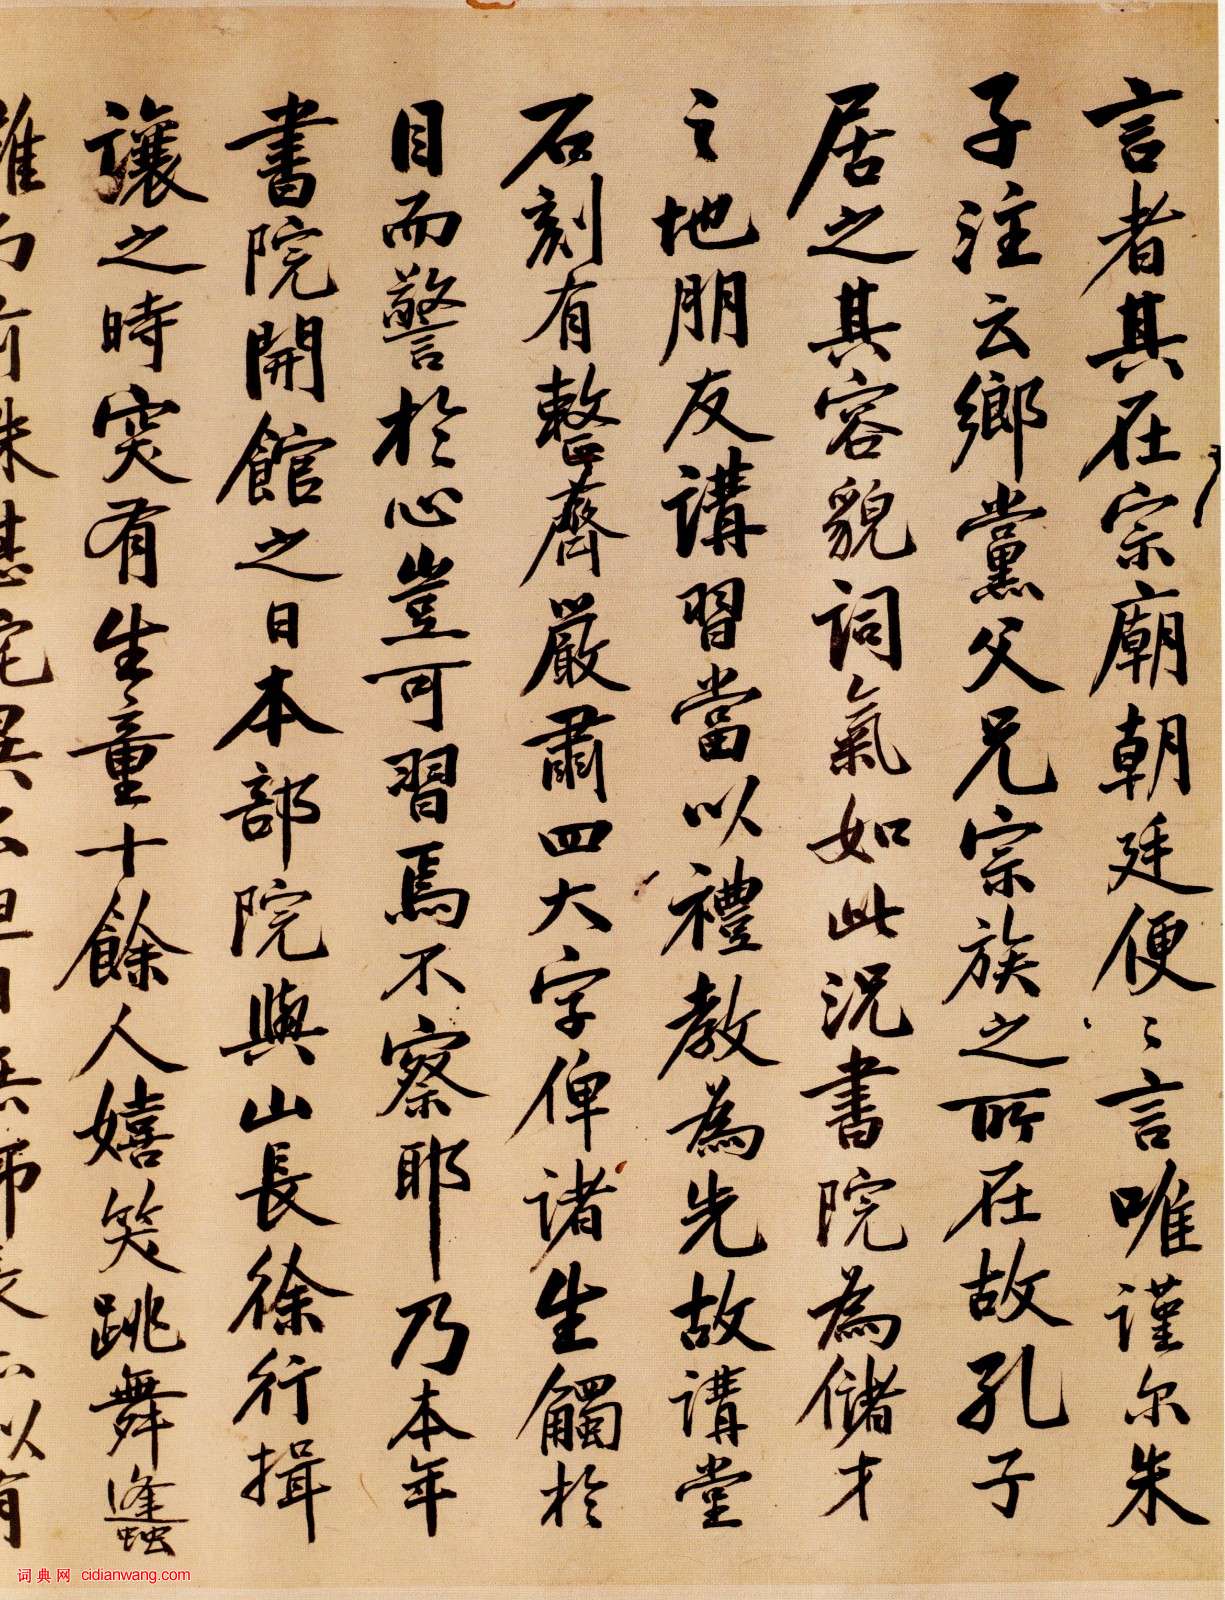 言者其在宗廟朝廷便〻言唯謹尔朱
子注云鄉黨父兄宗族之所在故孔子
居之其容貌詞氣如此況書院為儲才
之地朋友講習當以禮教為先故講堂
石刻有整齊嚴肅四大字俾諸生觸於
目而警於心豈可習焉不察耶乃本年
書院開館之日本部院與山長徐行揖
讓之時突有生童十餘人嬉笑跳舞蜂
詞典网 cidianwang.com